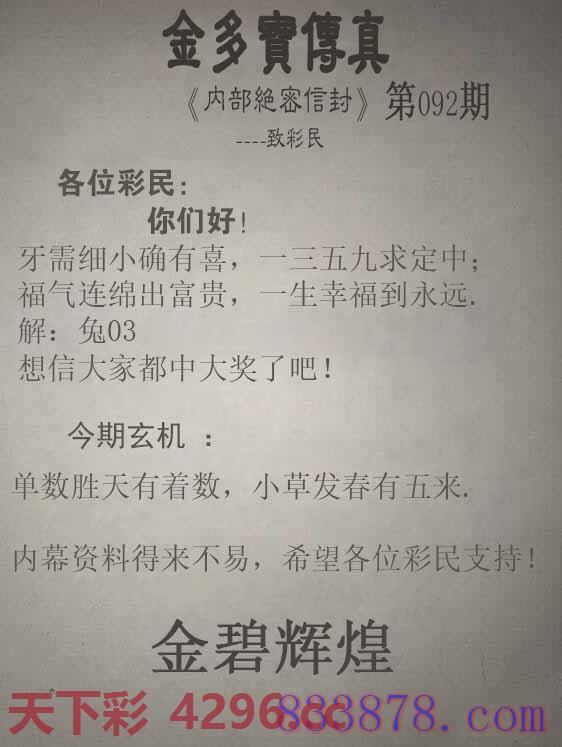 金多寶傳真
《内部絕密信封》第092期
----致彩民
各位彩民:
你们好!
牙需细小确有喜，一三五九求定中;
福气连绵出富贵，一生幸福到永远.
解：兔03
想信大家都中大奖了吧!
今期玄机 :
单数胜天有着数，小草发春有五来.
内幕资料得来不易，希望各位彩民支持!
金碧辉煌
天下彩 4296.cc
833878.com